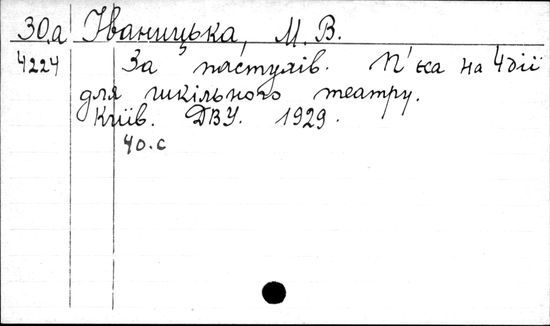 30.а Іваницька, М. В.
4224 За пастухів. П'єса на 4 дії
для шкільного театру.
Київ. ДВУ. 1929.
40.с